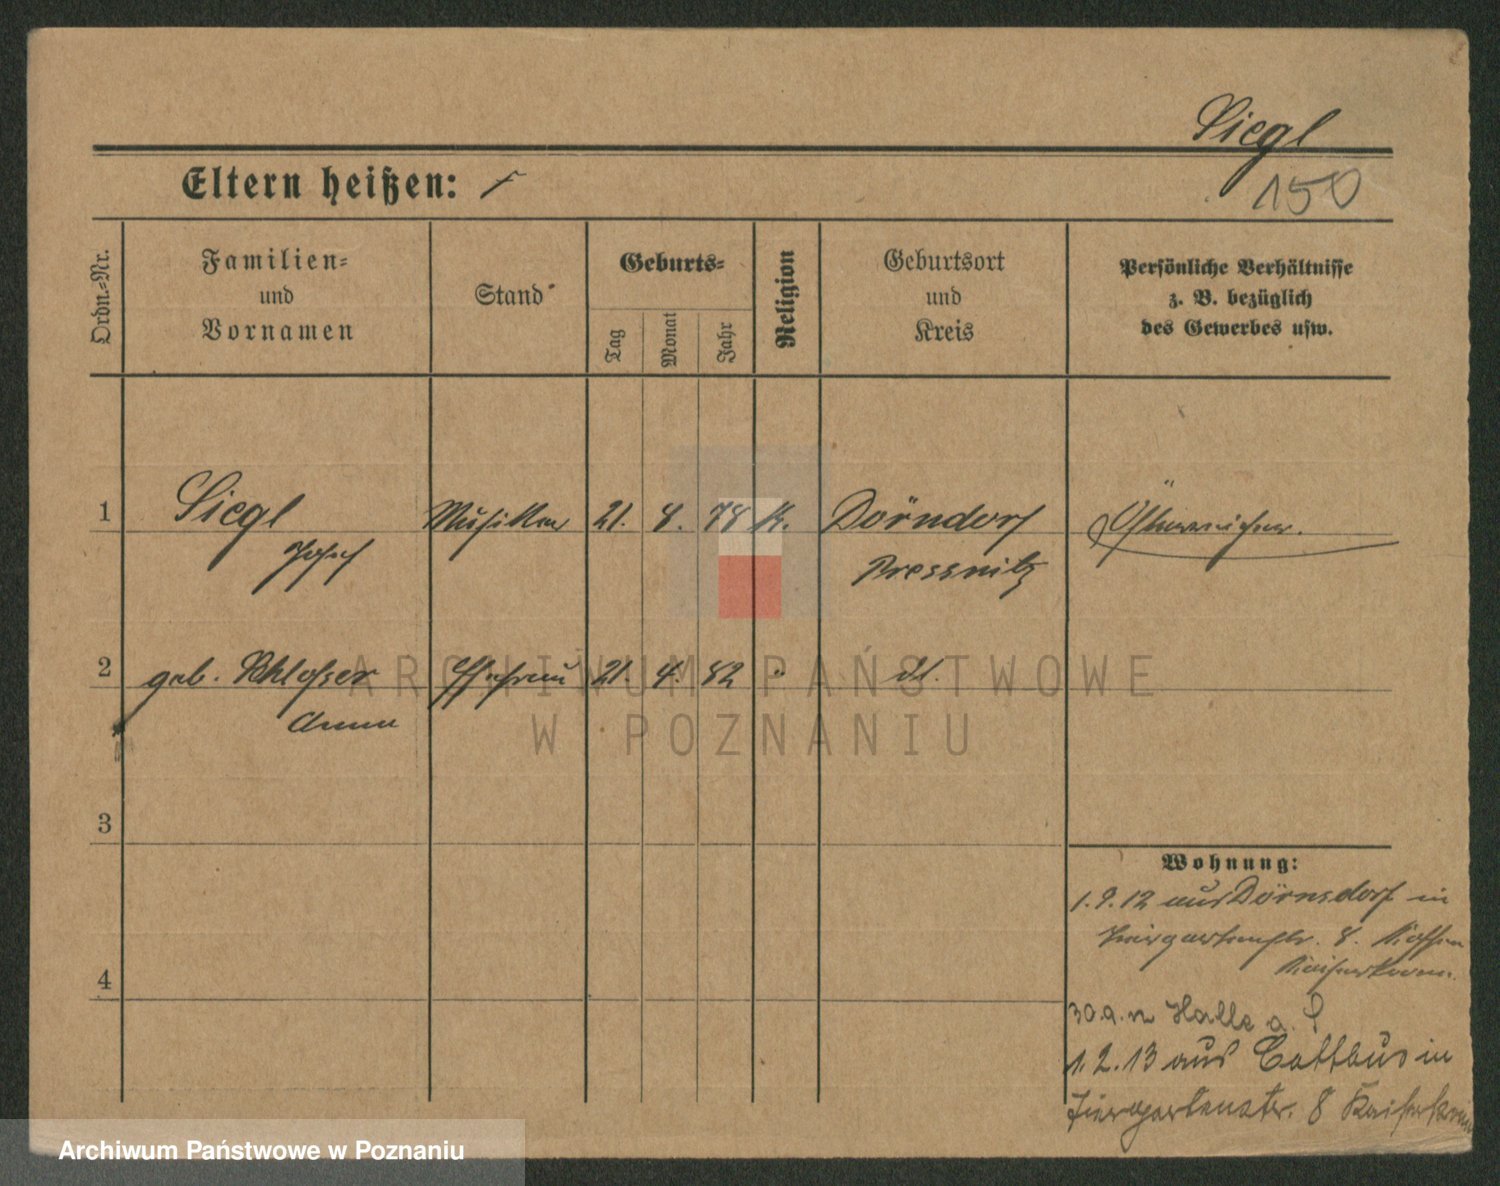 Siegl
Eltern heißen:
150
Ordn.-Nr.
Familien-
und
Vornamen
Stand
Geburts-
Tag
Monat
Jahr
Religion
Geburtsort
und
Kreis
Persönliche Verhältnisse
z. B. bezüglich
des Gewerbes usw.
1 Siegl Musiker 21. 8. 78 K. Dörndorf Österreicher.
Josef Pressnitz
2 geb. Schlosser Ehefrau 21. 4. 82 " dl.
Anna
3
Wohnung:
1.9.12 aus Dörnsdorf in
Tiergartenstr. 8.
Kaiserkrone.
4
30.9. n Halle a. S
1.2.13 aus Cottbus in
Tiergartenstr. 8 Kaiserkrone
ARCHIWUM PAŃSTWOWE
W POZNANIU
Archiwum Państwowe w Poznaniu